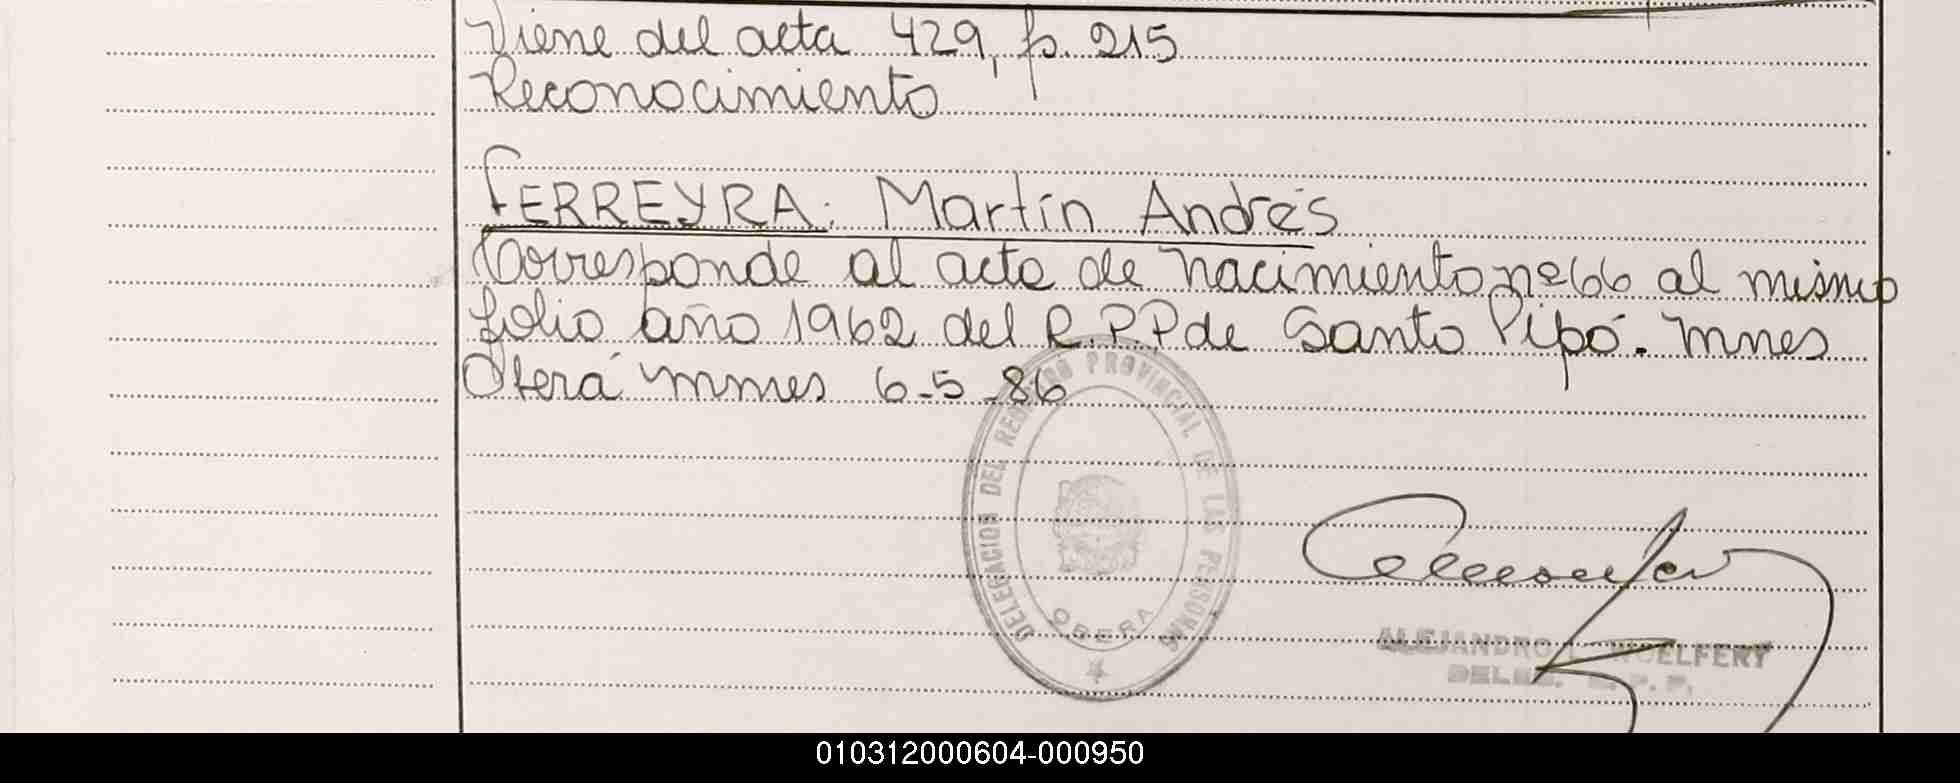 Viene del acta 429, fs. 215
Reconocimiento
FERREYRA: Martín Andrés
Corresponde al acta de nacimiento nº 66 al mismo
folio año 1962 del R.P.P de Santo Pipó. Mnes
Oberá Mnes 6-5-86
DELEGACION DEL REGISTRO PROVINCIAL DE LAS PERSONAS
OBERA
ALEJANDRO L. WOELFERT
DELEG. R. P. P.
010312000604-000950